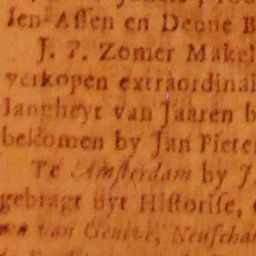 len Assen en Denne B
J. P. Zomer Makel
verkopen extraordinai
langheyt van Jaaren b
bekomen by Jan Piete
Te Amsterdam by J
gebragt uyt Historise,
van Geneve, Neufcha